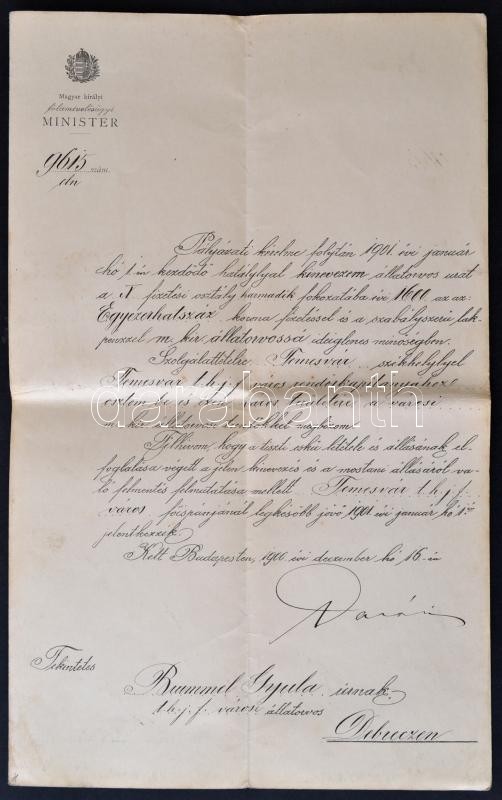 Magyar királyi
földmivelésügyi
MINISTER
9615 szám.
eln
Pályázati kérelme folytán 1901. évi január
hó 1-én kezdődő hatálylyal kinevezem állatorvos urat
a X fizetési osztály harmadik fokozatába évi 1600 az az
Egyezerhatszáz korona fizetéssel és a szabályszerü lak-
pénzzel m. kir. állatorvossá ideiglenes minőségben.
Szolgálattételre Temesvár székhelylyel
Temesvár t. h. j. f. város rendőrkapitányához
osztom be és a város területére a városi
m. kir. állatorvosi teendőkkel megbizom.
Felhivom, hogy a tiszti eskü letétele és állásának el-
foglalása végett a jelen kinevezés és a mostani állásáról va-
ló felmentés felmutatása mellett Temesvár t. h. j. f.
város főispánjánál legkésőbb jövő 1901 évi január hó 1-én
jelentkezzék.
Kelt Budapesten, 1900. évi deczember hó 16-án
Darányi
Tekintetes
Rummel Gyula urnak.
t. h. j. f. városi állatorvos
Debreczen
darabanth